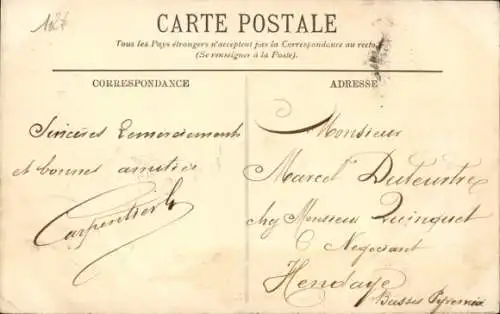 1427
CARTE POSTALE
Tous les Pays étrangers n'acceptent pas la Correspondance au recto
(Se renseigner à la Poste).
CORRESPONDANCE
ADRESSE
Sincères Remerciements
et bonnes amitiés
Carpentier
Monsieur
Marcel Duteurtre
chez Monsieur Quinquet
Negociant
Hendaye
Basses Pyrenées